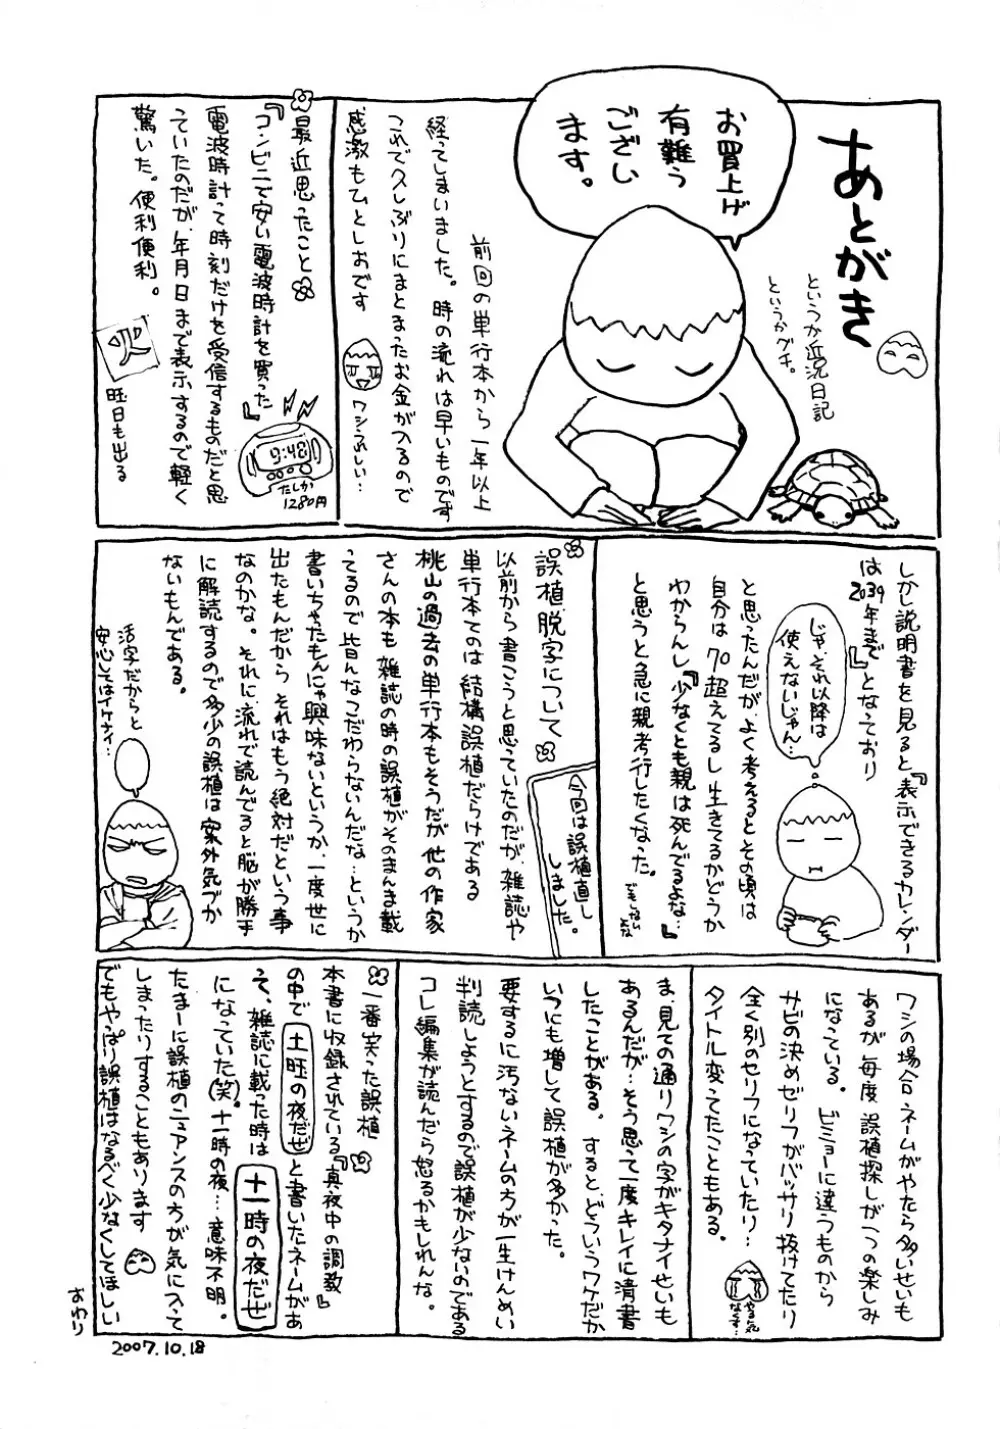 あとがき
というか近況日記
というかグチ。
お買上げ
有難う
ござい
ます。
前回の単行本から一年以上
経ってしまいました。時の流れは早いものです
これで久しぶりにまとまったお金が入るので
感激もひとしおです
ワシうれしい…
最近思ったこと
『コンビニで安い電波時計を買った』
電波時計って時刻だけを受信するものだと思
っていたのだが、年月日まで表示するので軽く
驚いた。便利便利。
9:48
たしか
1280円
旺日も出る
しかし説明書を見ると『表示できるカレンダー
は2039年まで』となっており
じゃ、それ以降は
使えないじゃん…
と思ったんだが、よく考えるとその頃は
自分は70超えてるし生きてるかどうか
わからんし『少なくとも親は死んでるよな…』
と思うと急に親孝行したくなった。
でもしない
よな
誤植脱字について
今回は誤植直し
しました。
以前から書こうと思っていたのだが、雑誌や
単行本てのは結構誤植だらけである
桃山の過去の単行本もそうだが他の作家
さんの本も雑誌の時の誤植がそのまんま載
ってるので皆んなこだわらないんだな…というか
書いちゃたもんにゃ興味ないというか、一度世に
出たもんだからそれはもう絶対だという事
なのかな。それに流れで読んでると脳が勝手
に解読するので多少の誤植は案外気づか
ないもんである。
活字だからと
安心してはイケナイ…
ワシの場合、ネームがやたら多いせいも
あるが毎度誤植探しが一つの楽しみ
になっている。ビミョーに違うものから
サビの決めゼリフがバッサリ抜けてたり
全く別のセリフになっていたり…
タイトル変ってたこともある。
やる気
なくす…
ま、見ての通りワシの字がキタナイせいも
あるんだが…そう思って一度キレイに清書
したことがある。するとどういうワケだか
いつにも増して誤植が多かった。
要するに汚ないネームの方が一生けんめい
判読しようとするので誤植が少ないのである
コレ編集が読んだら怒るかもしれんな。
一番笑った誤植
本書に収録されている『真夜中の調教』
の中で土旺の夜だぜと書いたネームがあ
って、雑誌に載った時は十一時の夜だぜ
になっていた(笑)。十一時の夜…意味不明。
たまーに誤植のニュアンスの方が気に入って
しまったりすることもあります
でもやっぱり誤植はなるべく少なくしてほしい
おわり
2007.10.18